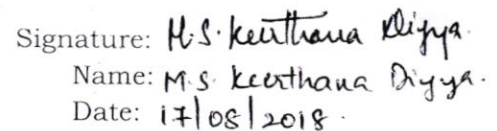 Signature: M.S. Keerthana Divya.
Name: M.S. Keerthana Divya.
Date: 17/08/2018.